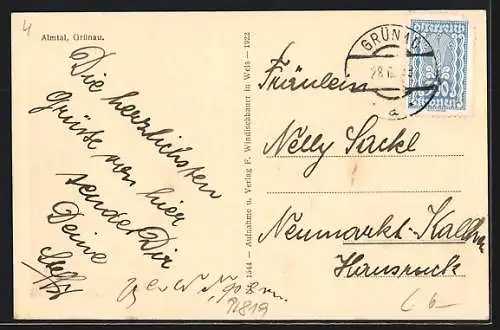 4
Almtal, Grünau.
Die herzlichsten
Grüße von hier
sendet Dir
Deine
1544 — Aufnahme u. Verlag F. Windischbauer in Wels — 1922
GRÜNAU
28
a
Fräulein
Nelly Sackl
Neumarkt-Kallham
Hausruck